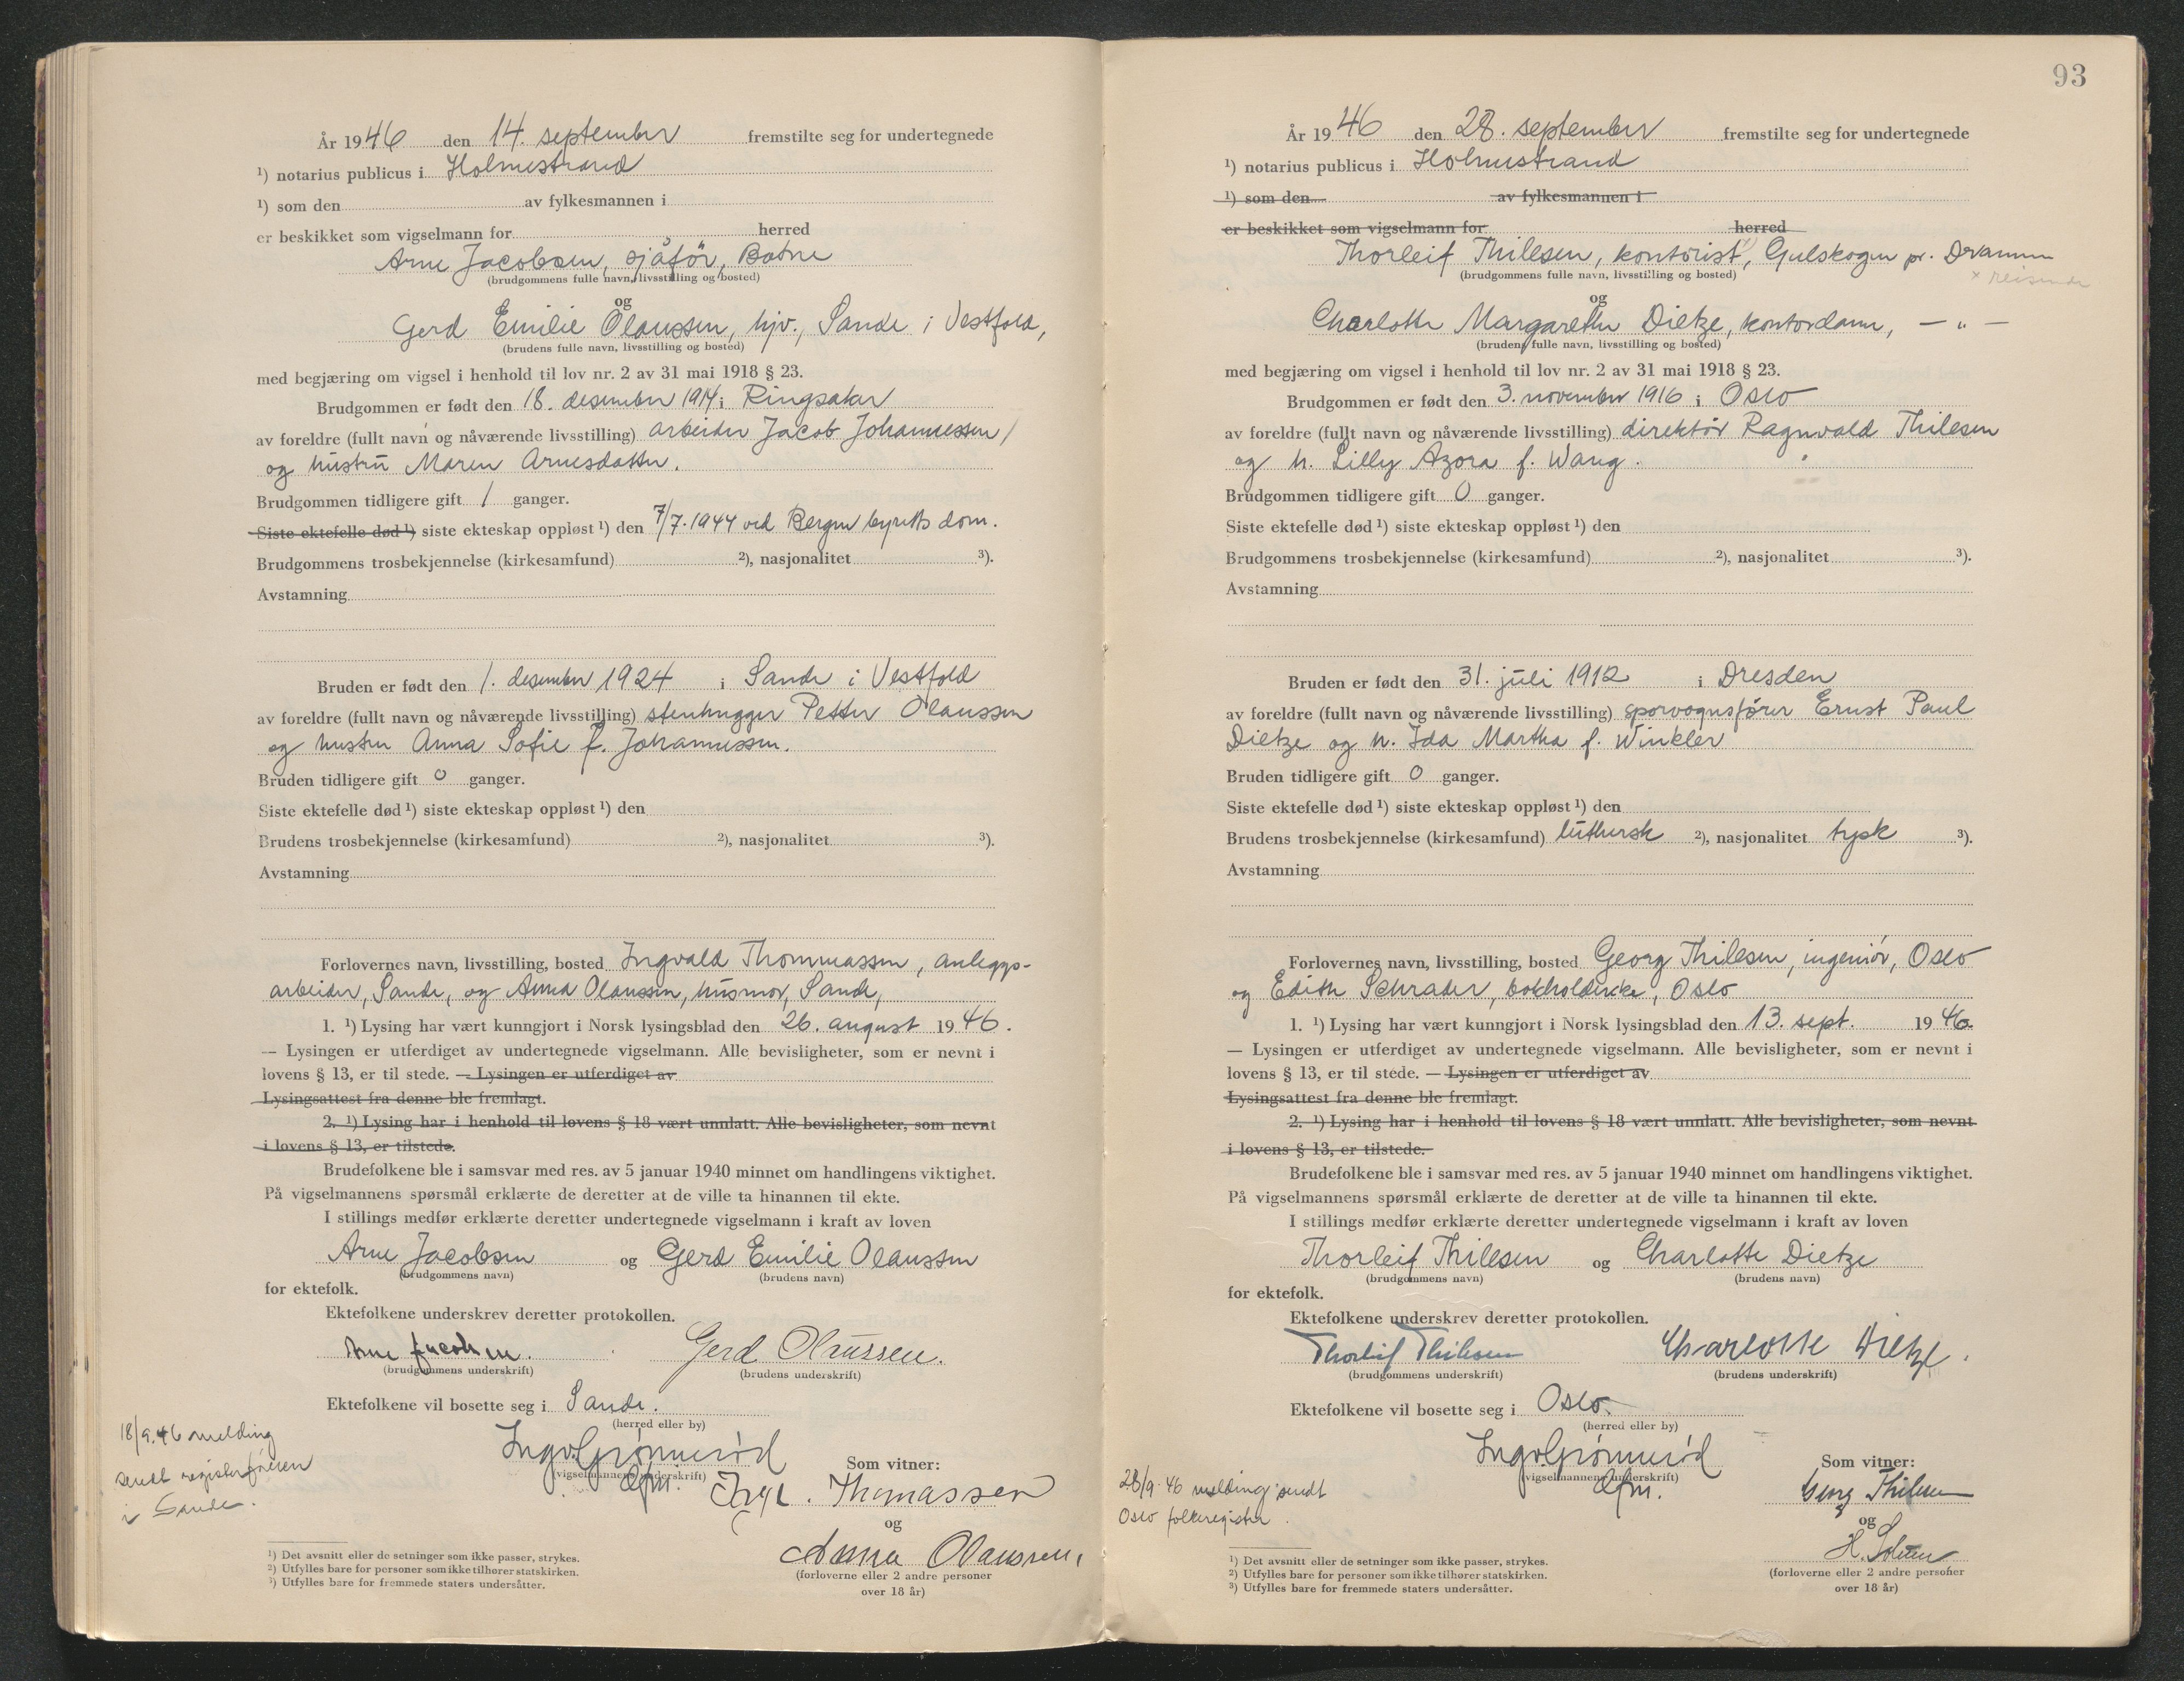 År 1946 den 14. september fremstilte seg for undertegnede
¹) notarius publicus i Holmestrand
¹) som den av fylkesmannen i
er beskikket som vigselmann for herred
Arne Jacobsen, sjåför, Botne
(brudgommens fulle navn, livsstilling og bosted)
og
Gerd Emilie Olaussen, hjv., Sande i Vestfold,
(brudens fulle navn, livsstilling og bosted)
med begjæring om vigsel i henhold til lov nr. 2 av 31 mai 1918 § 23.
Brudgommen er født den 18. desember 1914 i Ringsaker
av foreldre (fullt navn og nåværende livsstilling) arbeider Jacob Johannessen
og hustru Maren Arnesdatter.
Brudgommen tidligere gift 1 ganger.
Siste ektefelle død ¹) siste ekteskap oppløst ¹) den 7/7.1944 ved Bergen byretts dom.
Brudgommens trosbekjennelse (kirkesamfund) ²), nasjonalitet ³).
Avstamning
Bruden er født den 1. desember 1924 i Sande i Vestfold
av foreldre (fullt navn og nåværende livsstilling) stenhugger Petter Olaussen
og hustru Anna Sofie f. Johannessen.
Bruden tidligere gift 0 ganger.
Siste ektefelle død ¹) siste ekteskap oppløst ¹) den
Brudens trosbekjennelse (kirkesamfund) ²), nasjonalitet ³).
Avstamning
Forlovernes navn, livsstilling, bosted Ingvald Thommassen, anleggs-
arbeider, Sande, og Anna Olaussen, husmor, Sande,
1. ¹) Lysing har vært kunngjort i Norsk lysingsblad den 26. august 1946.
— Lysingen er utferdiget av undertegnede vigselmann. Alle bevisligheter, som er nevnt i
lovens § 13, er til stede. — Lysingen er utferdiget av
Lysingsattest fra denne ble fremlagt.
2. ¹) Lysing har i henhold til lovens § 18 vært unnlatt. Alle bevisligheter, som nevnt
i lovens § 13, er tilstede.
Brudefolkene ble i samsvar med res. av 5 januar 1940 minnet om handlingens viktighet.
På vigselmannens spørsmål erklærte de deretter at de ville ta hinannen til ekte.
I stillings medfør erklærte deretter undertegnede vigselmann i kraft av loven
Arne Jacobsen og Gerd Emilie Olaussen
(brudgommens navn) (brudens navn)
for ektefolk.
Ektefolkene underskrev deretter protokollen.
Arne Jacobsen. Gerd Olaussen.
(brudgommens underskrift) (brudens underskrift)
Ektefolkene vil bosette seg i Sande.
(herred eller by)
18/9.46 melding
sendt registerføreren
i Sande.
Ingv. Grønnerød
(vigselmannens underskrift)
Som vitner:
Ingv. Thomassen
og
Anna Olaussen,
(forloverne eller 2 andre personer
over 18 år)
¹) Det avsnitt eller de setninger som ikke passer, strykes.
²) Utfylles bare for personer som ikke tilhører statskirken.
³) Utfylles bare for fremmede staters undersåtter.
93
År 1946 den 28. september fremstilte seg for undertegnede
¹) notarius publicus i Holmestrand
¹) som den av fylkesmannen i
er beskikket som vigselmann for herred
Thorleif Thilesen, kontorist, Gulskogen pr. Drammen
(brudgommens fulle navn, livsstilling og bosted)
x reisende
og
Charlotte Margarethe Dietze, kontordame, — " —
(brudens fulle navn, livsstilling og bosted)
med begjæring om vigsel i henhold til lov nr. 2 av 31 mai 1918 § 23.
Brudgommen er født den 3. november 1916 i Oslo
av foreldre (fullt navn og nåværende livsstilling) direktør Ragnvald Thilesen
og h. Lilly Azora f. Wang.
Brudgommen tidligere gift 0 ganger.
Siste ektefelle død ¹) siste ekteskap oppløst ¹) den
Brudgommens trosbekjennelse (kirkesamfund) ²), nasjonalitet ³).
Avstamning
Bruden er født den 31. juli 1912 i Dresden
av foreldre (fullt navn og nåværende livsstilling) sporvognsfører Ernst Paul
Dietze og h. Ida Martha f. Winkler
Bruden tidligere gift 0 ganger.
Siste ektefelle død ¹) siste ekteskap oppløst ¹) den
Brudens trosbekjennelse (kirkesamfund) luthersk ²), nasjonalitet tysk ³).
Avstamning
Forlovernes navn, livsstilling, bosted Georg Thilesen, ingeniør, Oslo
og Edith Schrader, bokholderske, Oslo
1. ¹) Lysing har vært kunngjort i Norsk lysingsblad den 13. sept. 1946.
— Lysingen er utferdiget av undertegnede vigselmann. Alle bevisligheter, som er nevnt i
lovens § 13, er til stede. — Lysingen er utferdiget av
Lysingsattest fra denne ble fremlagt.
2. ¹) Lysing har i henhold til lovens § 18 vært unnlatt. Alle bevisligheter, som nevnt
i lovens § 13, er tilstede.
Brudefolkene ble i samsvar med res. av 5 januar 1940 minnet om handlingens viktighet.
På vigselmannens spørsmål erklærte de deretter at de ville ta hinannen til ekte.
I stillings medfør erklærte deretter undertegnede vigselmann i kraft av loven
Thorleif Thilesen og Charlotte Dietze
(brudgommens navn) (brudens navn)
for ektefolk.
Ektefolkene underskrev deretter protokollen.
Thorleif Thilesen Charlotte Dietze.
(brudgommens underskrift) (brudens underskrift)
Ektefolkene vil bosette seg i Oslo.
(herred eller by)
28/9.46 melding sendt
Oslo folkeregister.
Ingv. Grønnerød
(vigselmannens underskrift)
Som vitner:
Georg Thilesen
og
(forloverne eller 2 andre personer
over 18 år)
¹) Det avsnitt eller de setninger som ikke passer, strykes.
²) Utfylles bare for personer som ikke tilhører statskirken.
³) Utfylles bare for fremmede staters undersåtter.